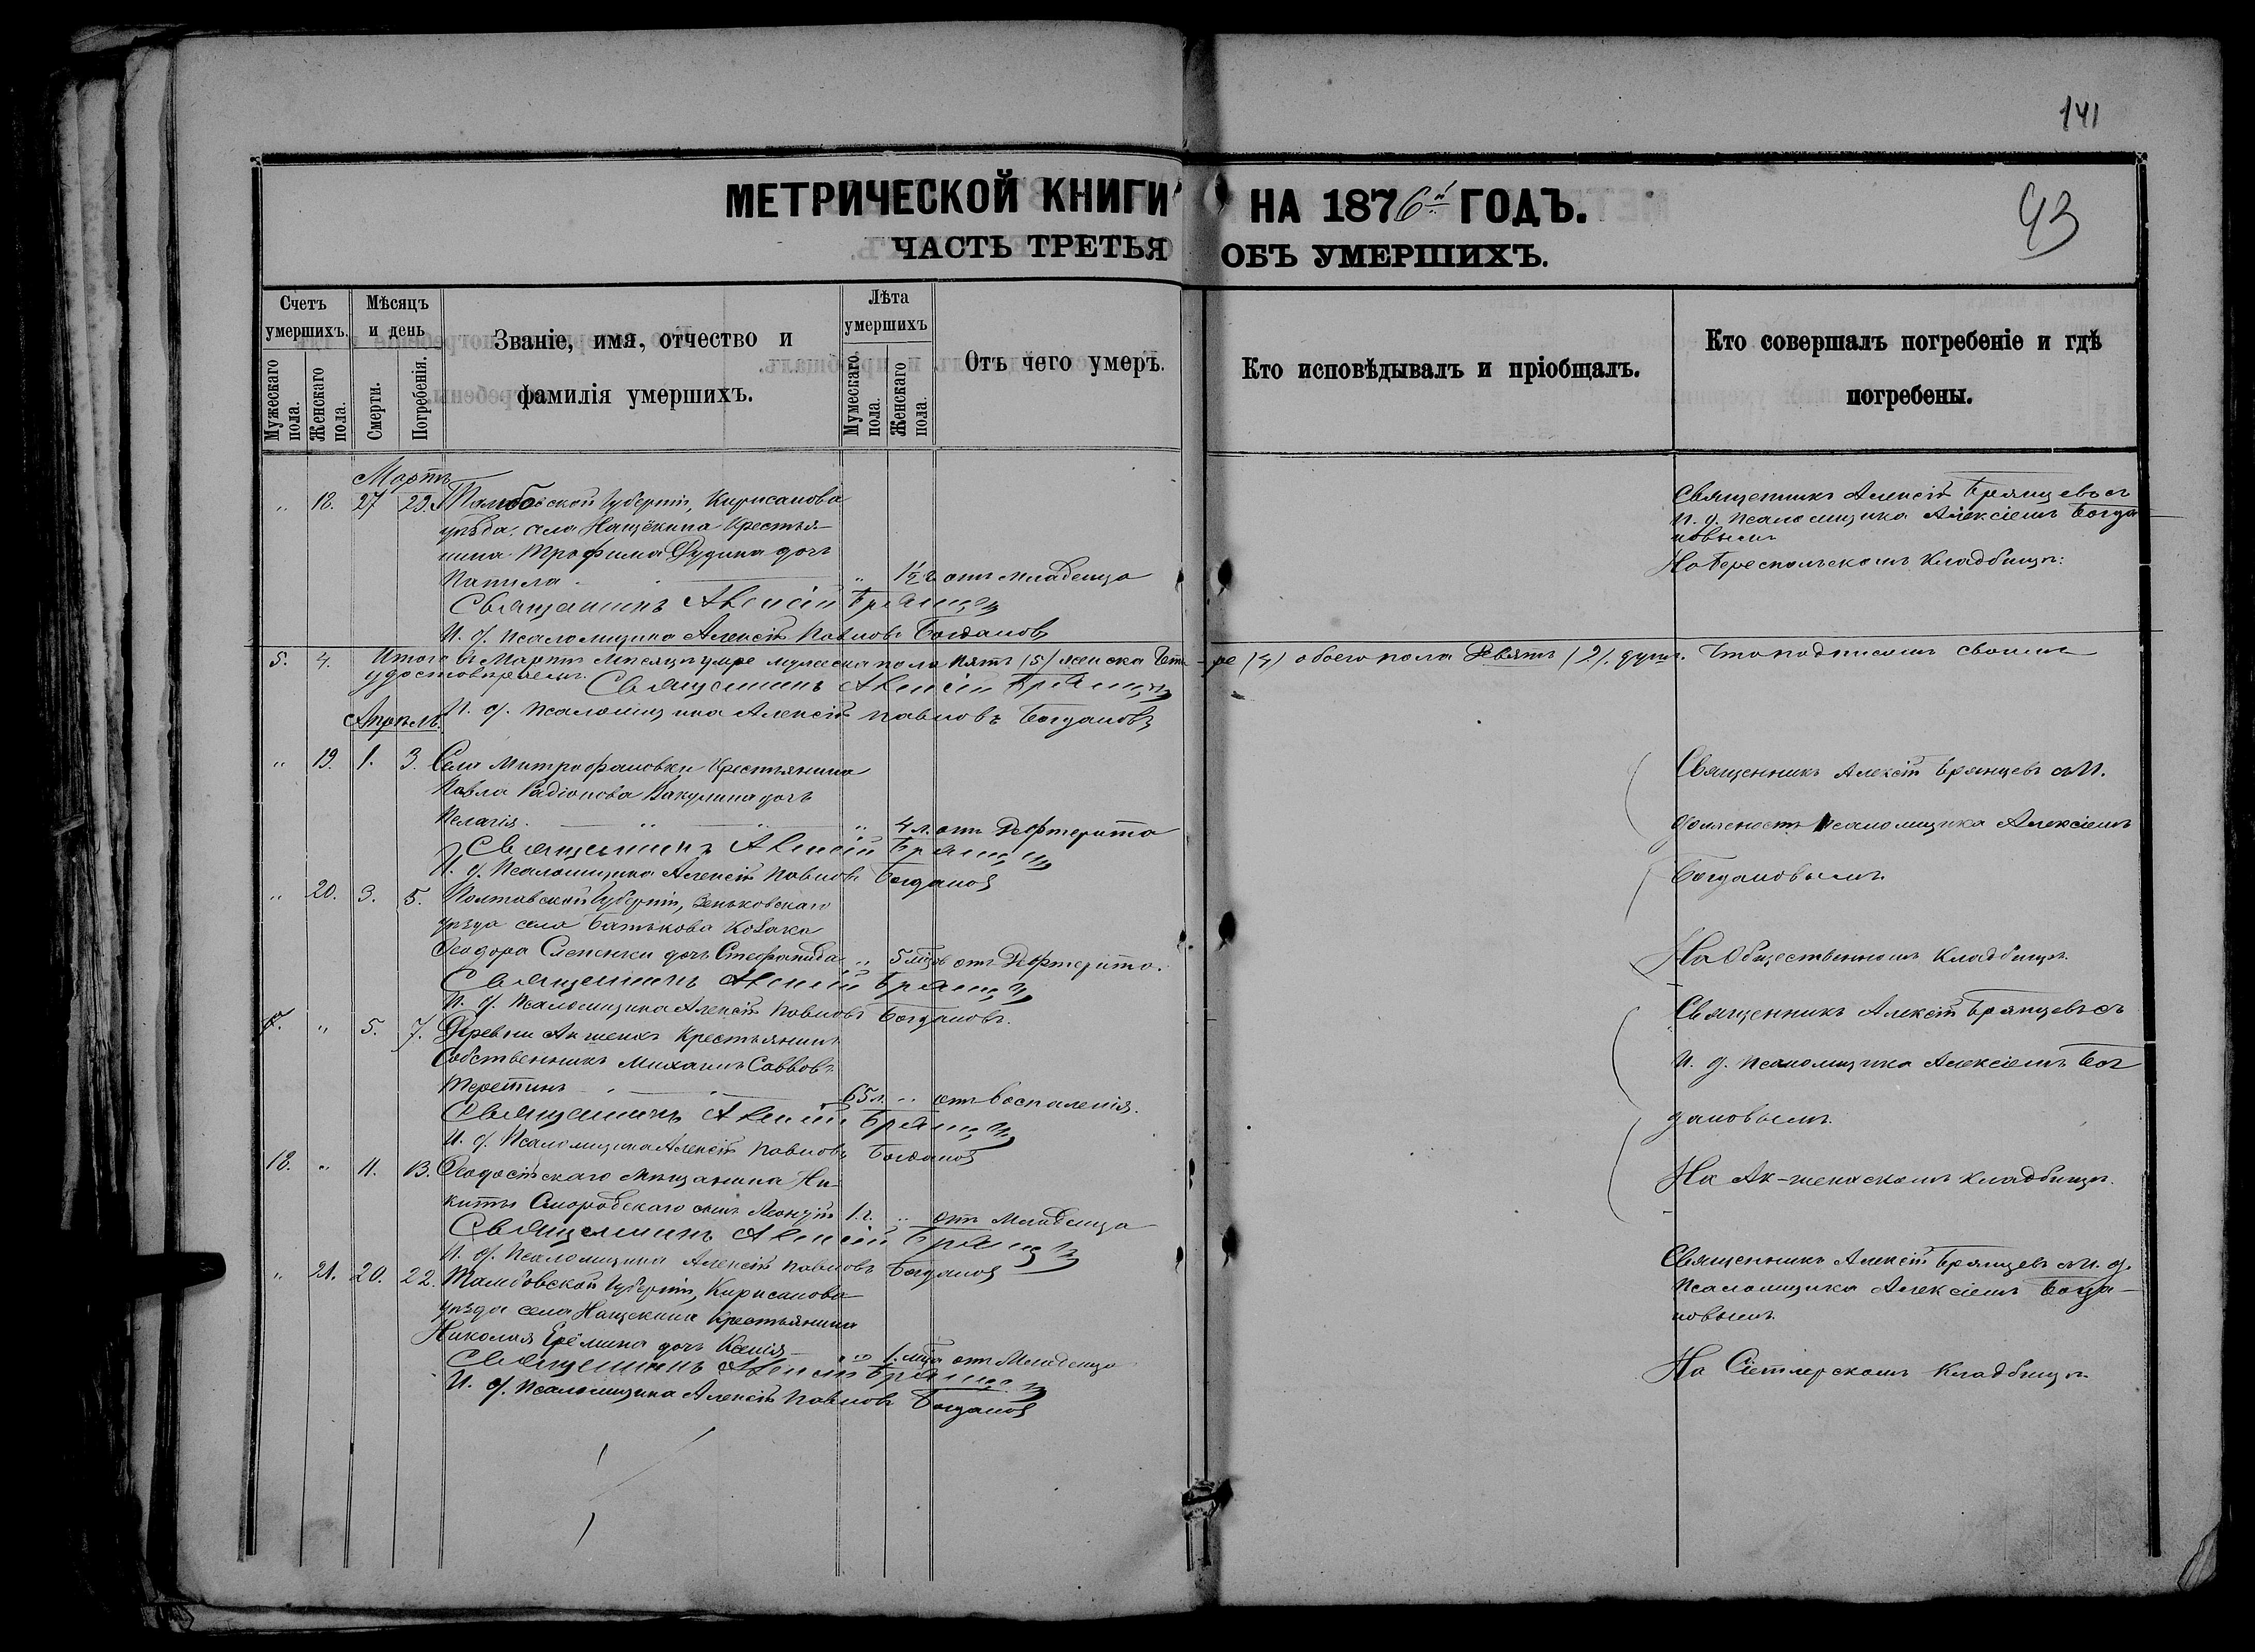 141
МЕТРИЧЕСКОЙ КНИГИ НА 1876й ГОДЪ.
43
ЧАСТЬ ТРЕТЬЯ ОБЪ УМЕРШИХЪ.
Счетъ умершихъ.
Мужескаго пола.
Женскаго пола.
Мѣсяцъ и день
Смерти.
Погребенія.
Званіе, имя, отчество и
фамилія умершихъ.
Лѣта умершихъ
Мужескаго пола.
Женскаго пола.
Отъ чего умеръ.
Кто исповѣдывалъ и пріобщалъ.
Кто совершалъ погребеніе и гдѣ
погребены.
Мартъ
" 18. 27 29. Тамбовской Губерніи, Кирсанова
уѣзда, села Нащёкина Крестья-
нина Трофима Дудина дочь
" 1½ г. отъ младенца
Священникъ Алексій Брянцевъ
И. д. псаломщика Алексѣй Павловъ Богдановъ
Священникъ Алексій Брянцевъ съ
И. д. псаломщика Алексіемъ Богда-
новымъ
Кладбищѣ:
5. 4. Итого въ Мартѣ мѣсяцѣ умре мужеска пола пять (5) женска Четы-ре (4) обоего пола Девять (9) душъ. Что подписомъ своимъ
удостовѣряемъ. Священникъ Алексій Брянцевъ
И. д. псаломщика Алексѣй Павловъ Богдановъ
Апрѣль.
" 19. 1. 3. Села Митрофановки Крестьянина
Павла Радіонова Вакулина дочь
Пелагія. " 4 л. отъ Дифтерита
Священникъ Алексій Брянцевъ
И. д. псаломщика Алексѣй Павловъ Богдановъ
Священникъ Алексій Брянцевъ съ И.
должность псаломщика Алексіемъ
Богдановымъ.
" 20. 3. 5. Полтавской Губерніи, Зеньковскаго
уѣзда села Батькова Козака
Ѳеодора дочь Стефанида " 5 мѣс. отъ Дифтерита.
Священникъ Алексій Брянцевъ
И. д. псаломщика Алексѣй Павловъ Богдановъ.
На Общественномъ Кладбищѣ.
" 5. 7. Деревни Акшенхъ Крестьянинъ
Собственникъ Михаилъ Саввовъ
65 л. " отъ воспаленія.
Священникъ Алексій Брянцевъ
И. д. псаломщика Алексѣй Павловъ Богдановъ
Священникъ Алексій Брянцевъ съ
И. д. псаломщика Алексіемъ Бог
дановымъ.
18. " 11. 13. Ѳеодосійскаго Мѣщанина Ни-
киты Смородскаго сынъ 1 г. " отъ Младенца
Священникъ Алексій Брянцевъ
И. д. псаломщика Алексѣй Павловъ Богдановъ
На Ак-шенскомъ кладбищѣ.
" 21. 20. 22. Тамбовской Губерніи, Кирсанова
уѣзда села Нащекина Крестьянина
Николая Ерёмина дочь Ксенія " 1 мѣс. отъ Младенца
Священникъ Алексій Брянцевъ
И. д. псаломщика Алексѣй Павловъ Богдановъ
Священникъ Алексій Брянцевъ съ И. д.
псаломщика Алексіемъ Богда-
новымъ.
Кладбищѣ